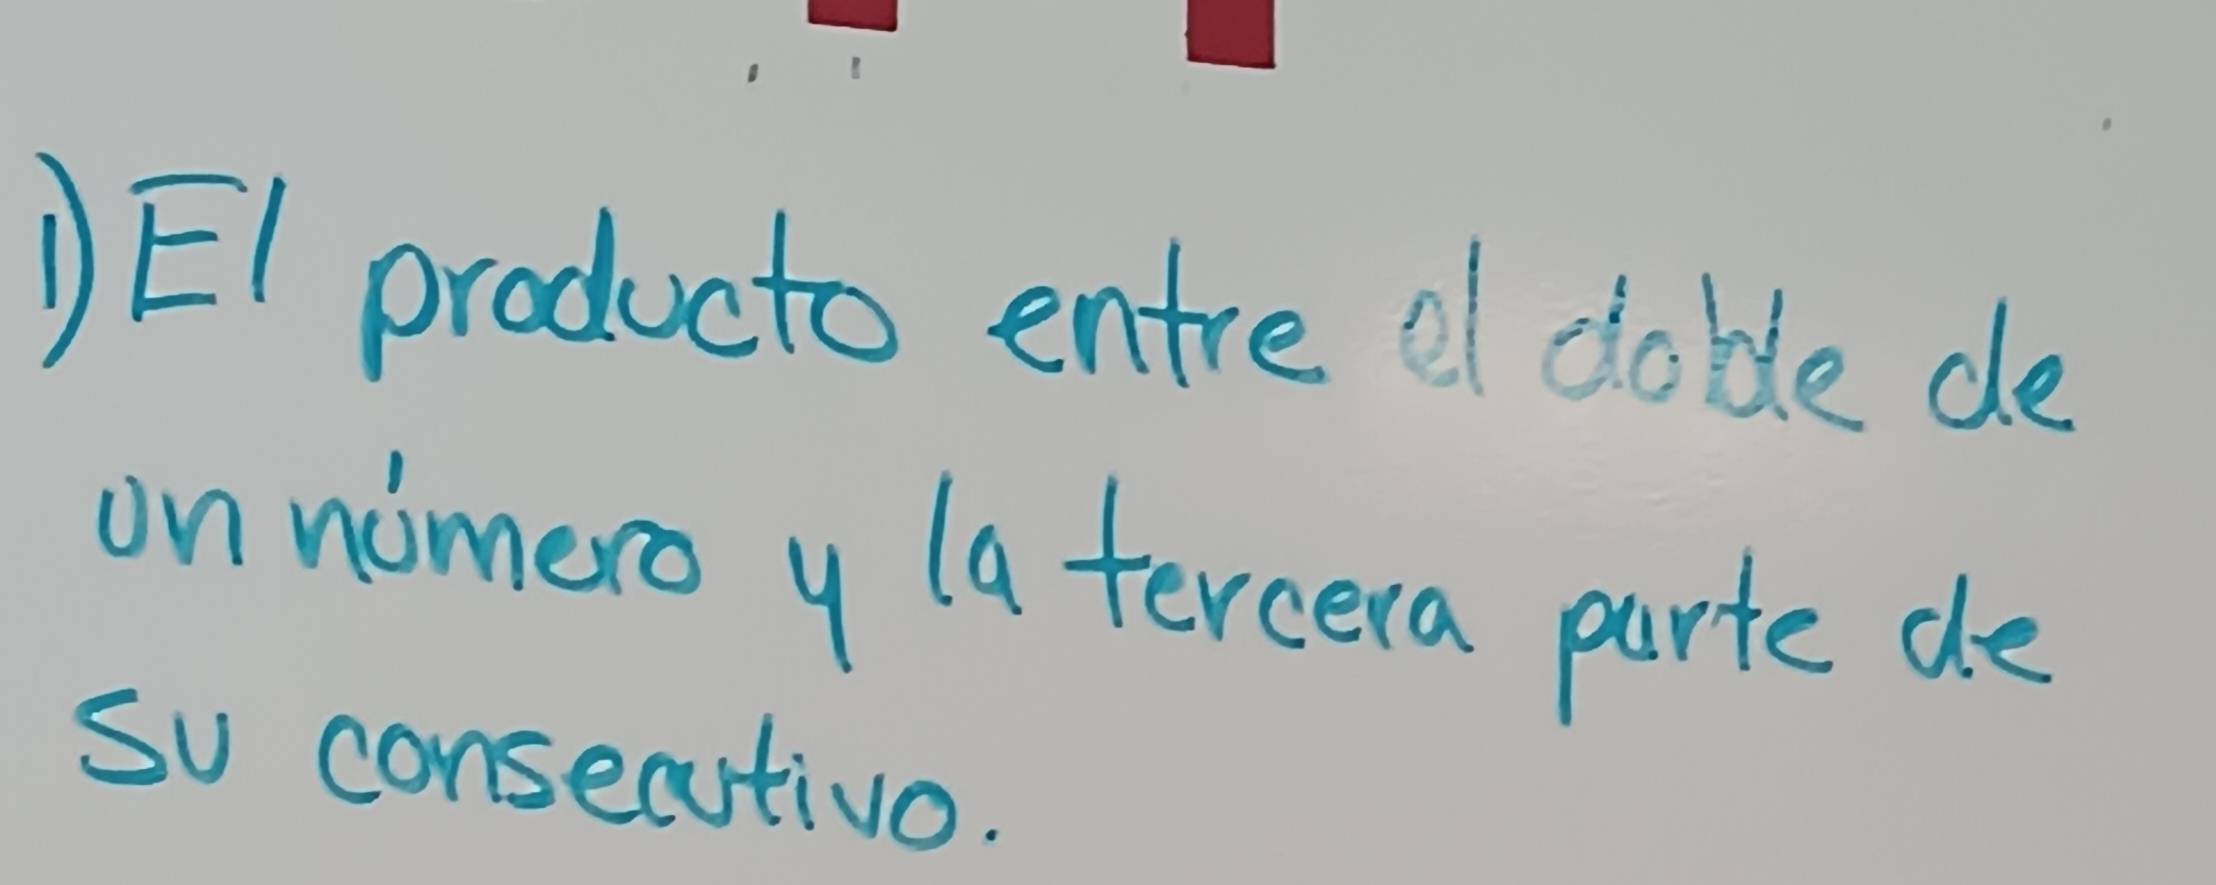 1) El producto entre el doble de
un número y la tercera parte de
su consecutivo.